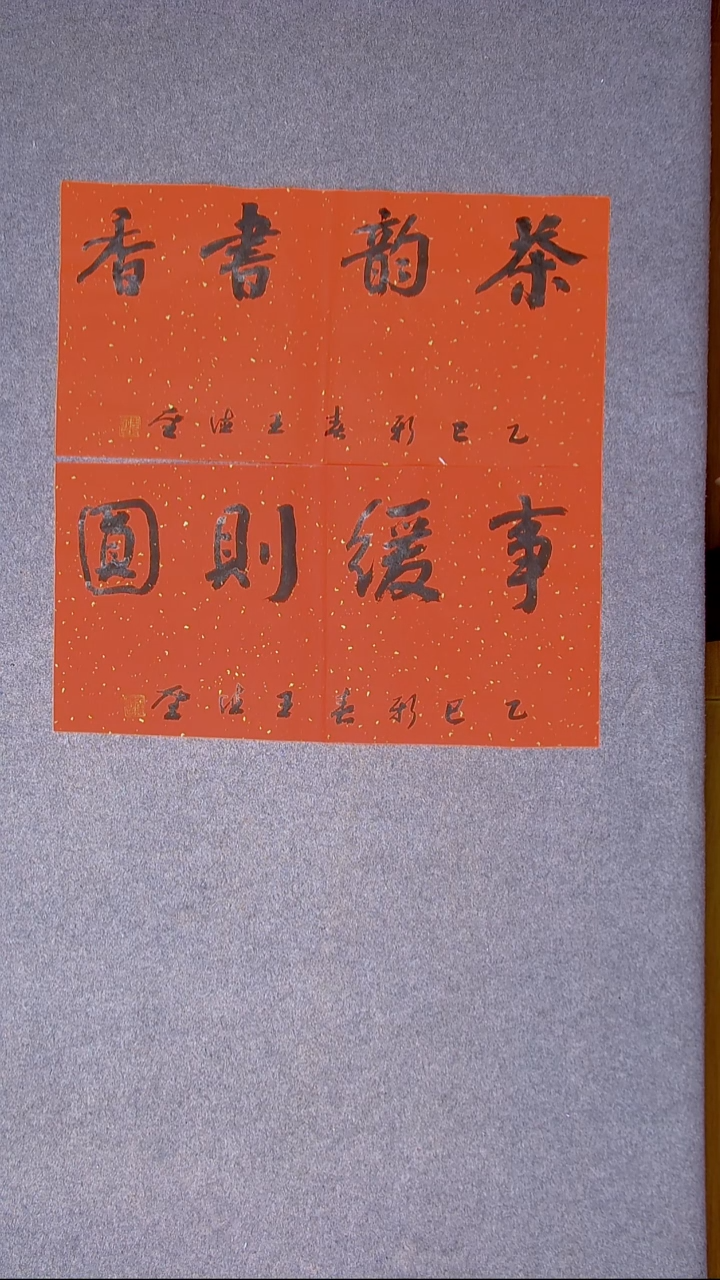 茶韵書香
乙巳新春王法堂
事緩則圓
乙巳新春王法堂